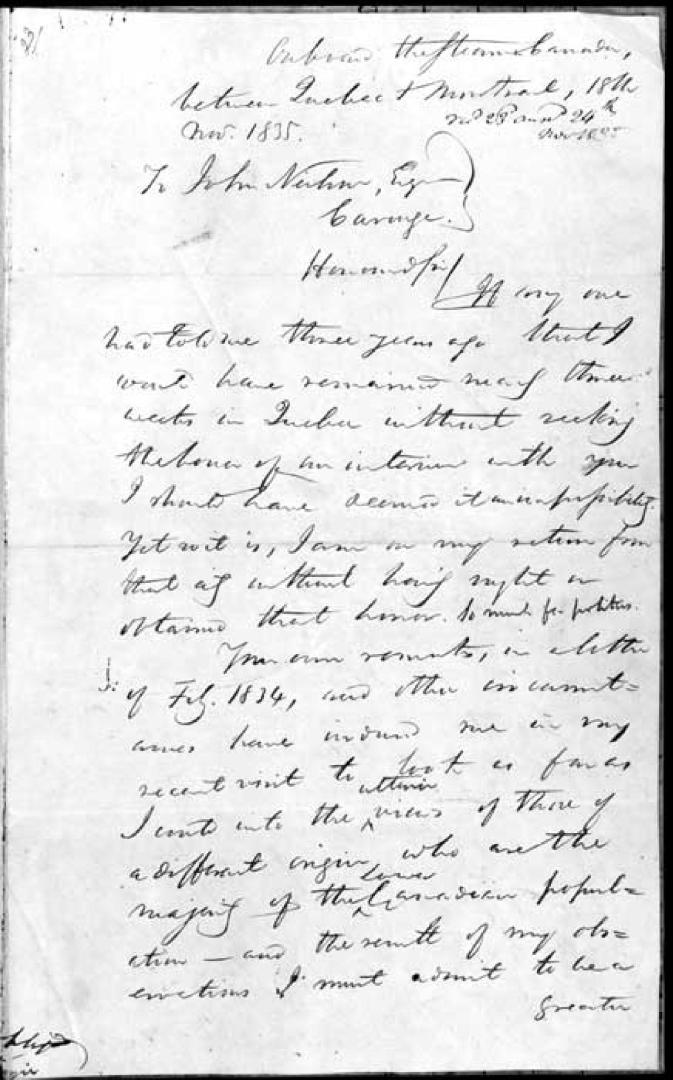 On board the Steamer Canada,
between Quebec & Montreal, 18th
Nov. 1835.
24th
Nov 1835
To John Neilson, Esqr
Honoured Sir/
If any one
had told me three years ago that I
would have remained nearly three
weeks in Quebec without seeking
the honor of an interview with you
I should have deemed it an impossibility.
Yet so it is, I am on my return from
that city without having sought or
obtained that honor. So much for politics.
Your own remarks, in a letter
of Feby. 1834, and other circumst=
ances have induced me in my
recent visit to look as far as
I could into the ulterior views of those of
a different origin, who are the
majority of the Lower Canadian popul=
ation — and the result of my obs=
ervations I must admit to be a
greater